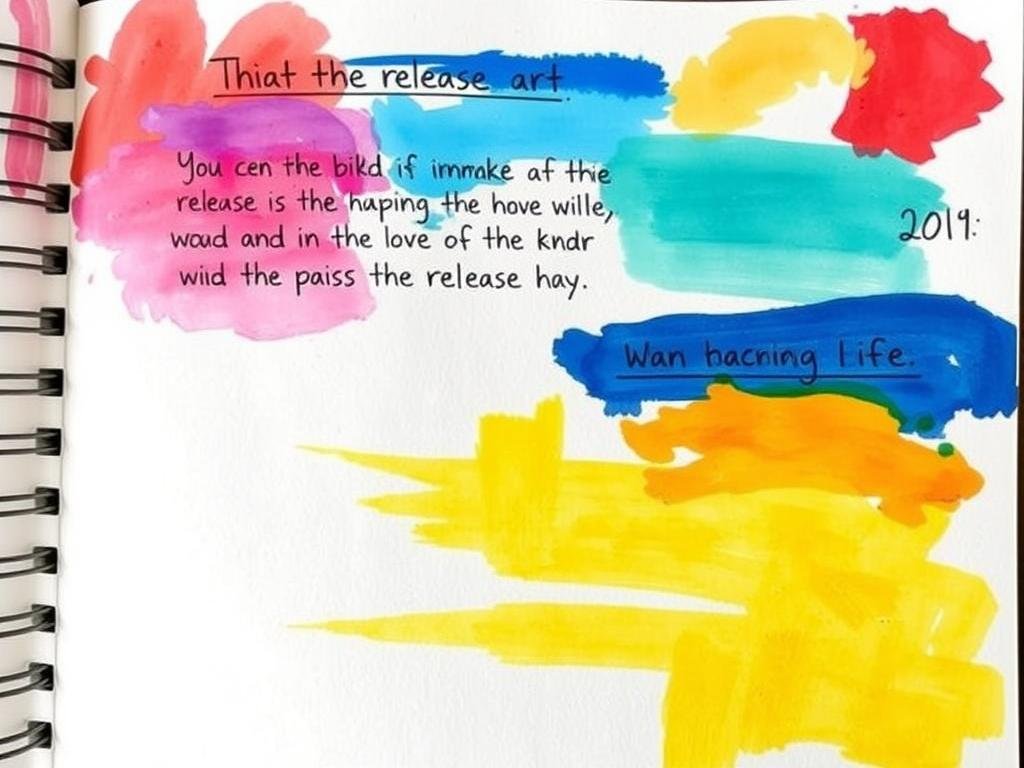 Thiat the release art.
You cen the bikd if immake af thie
release is the haping the hove wille,
woud and in the love of the kndr
wiid the paiss the release hay.
2019:
Wan hacning life.